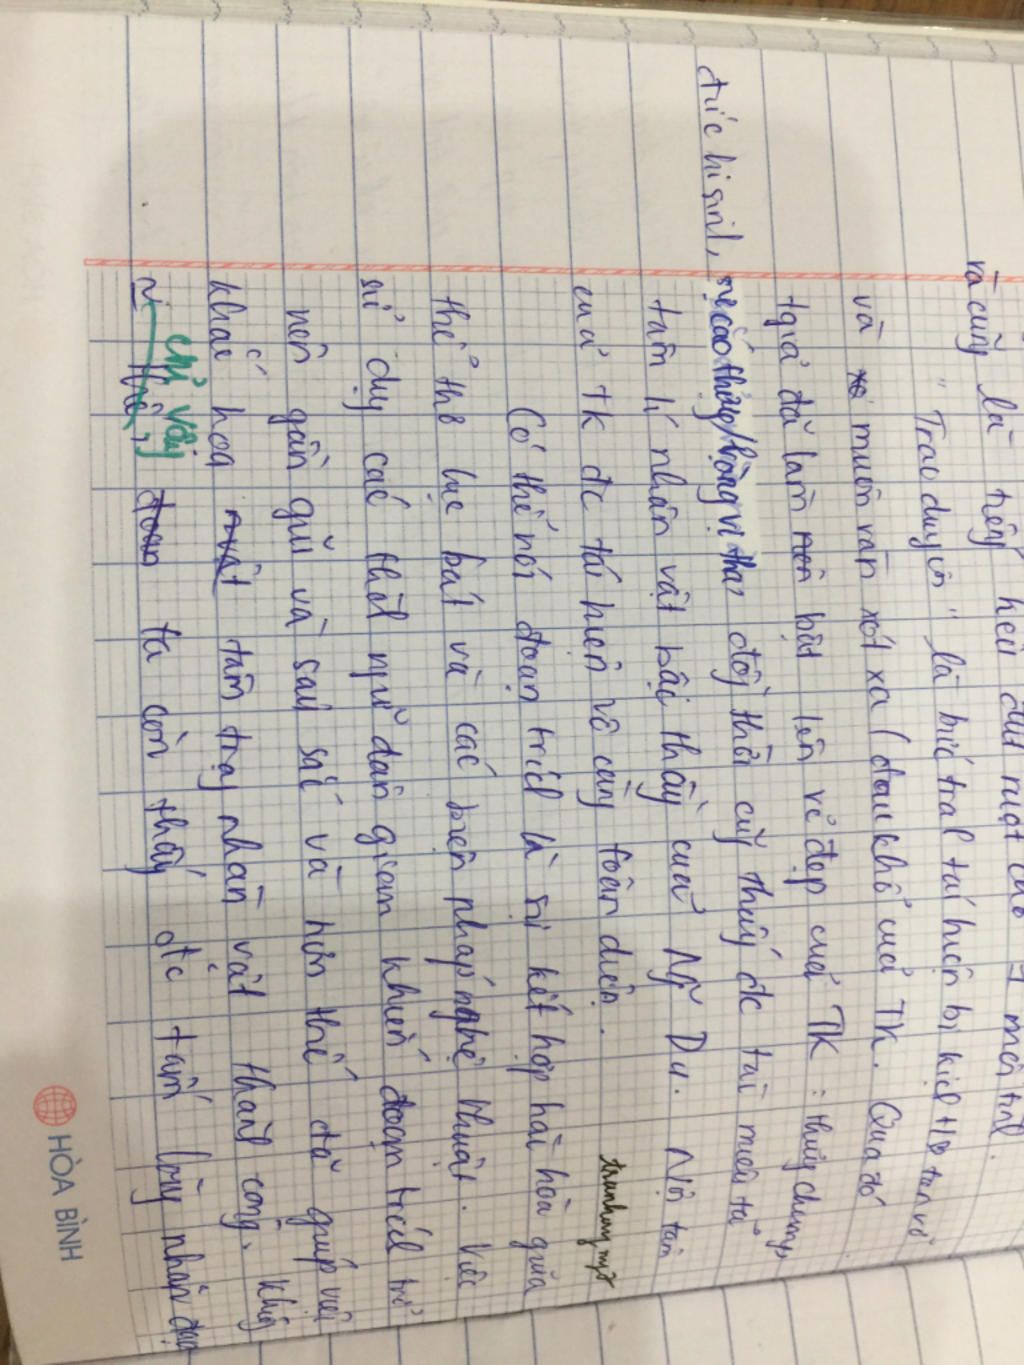 và cũng là tiếng kêu đứt ruột cho 1 mối tình.
"Trao duyên" là bức tranh tái hiện bi kịch tan vỡ
và muôn vàn xót xa, đau khổ của TK. Qua đó
tgiả đã làm nổi bật lên vẻ đẹp của TK: thủy chung,
đức hi sinh, sự cao thượng/lòng vị tha, đồng thời cũng thấy đc tài miêu tả
tâm lí nhân vật bậc thầy của Ng~ Du. Nội tâm
của TK đc tái hiện vô cùng toàn diện.
Có thể nói đoạn trích là sự kết hợp hài hòa giữa
thể thơ lục bát và các biện pháp nghệ thuật. Việc
sử dụng các thành ngữ dân gian khiến đoạn trích trở
nên gần gũi và sâu sắc và hơn thế đã giúp việc
khắc họa tâm trạng nhân vật thành công. Không
chỉ vậy ta còn thấy đc tấm lòng nhân đạo
HÒA BÌNH